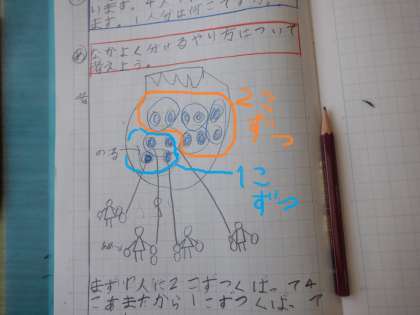 います。4人
ます。1人分は何こですか。
なかよく分けるやり方について
考えよう。
2こ
ずつ
のこ
1こ
ずつ
まず4人に2こずつくばって4
こあまたから1こずつくばって